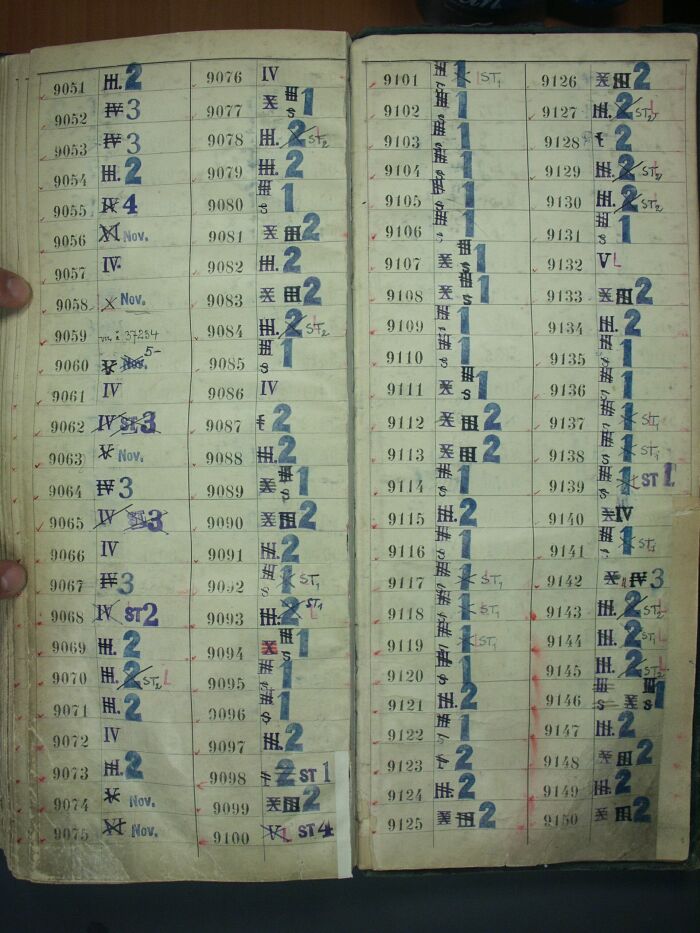 9051 III. 2
9052 IV 3
9053 IV 3
9054 III. 2
9055 IV 4
9056 XI Nov.
9057 IV.
9058 X Nov.
9059 37254
9060 V Nov. 5-
9061 IV
9062 IV ST 3
9063 V Nov.
9064 IV 3
9065 IV ST 3
9066 IV
9067 IV 3
9068 IV ST 2
9069 III. 2
9070 III. 2 ST2 L
9071 III. 2
9072 IV
9073 III. 2
9074 V Nov.
9075 XI Nov.
9076 IV
9077 X III s 1
9078 III. 2 ST2 L
9079 III. 2
9080 III s 1
9081 X III 2
9082 III. 2
9083 X III 2
9084 III. 2 ST2 L
9085 III s 1
9086 IV
9087 2
9088 III. 2
9089 X III s 1
9090 X III 2
9091 III. 2
9092 III s 1 ST1
9093 III. 2 ST1 L
9094 X III s 1
9095 III s 1
9096 III s 1
9097 III. 2
9098 2 ST 1
9099 X III 2
9100 V L ST 4
9101 III s 1 L ST1
9102 III s 1
9103 III s 1
9104 III s 1
9105 III s 1
9106 III s 1
9107 X III s 1
9108 X III s 1
9109 III s 1
9110 III s 1
9111 X III s 1
9112 X III 2
9113 X III 2
9114 III s 1
9115 III. 2
9116 III s 1
9117 III s 1 L ST1
9118 III s 1 L ST1
9119 III s 1 L ST1
9120 III s 1
9121 III. 2
9122 III s 1
9123 2
9124 III. 2
9125 X III 2
9126 X III 2
9127 III. 2 ST2 L
9128 2
9129 III. 2 ST2 L
9130 III. 2 ST2 L
9131 III s 1
9132 V L
9133 X III 2
9134 III. 2
9135 III s 1
9136 III s 1
9137 III s 1 L ST1
9138 III s 1 L ST1
9139 III s 1 L ST 1
9140 X IV
9141 III s 1 L ST1
9142 X IV 3
9143 III. 2 ST2 L
9144 III. 2 ST2 L
9145 III. 2 ST2 L
9146 III s X III s 1
9147 III. 2
9148 X III 2
9149 III. 2
9150 X III 2